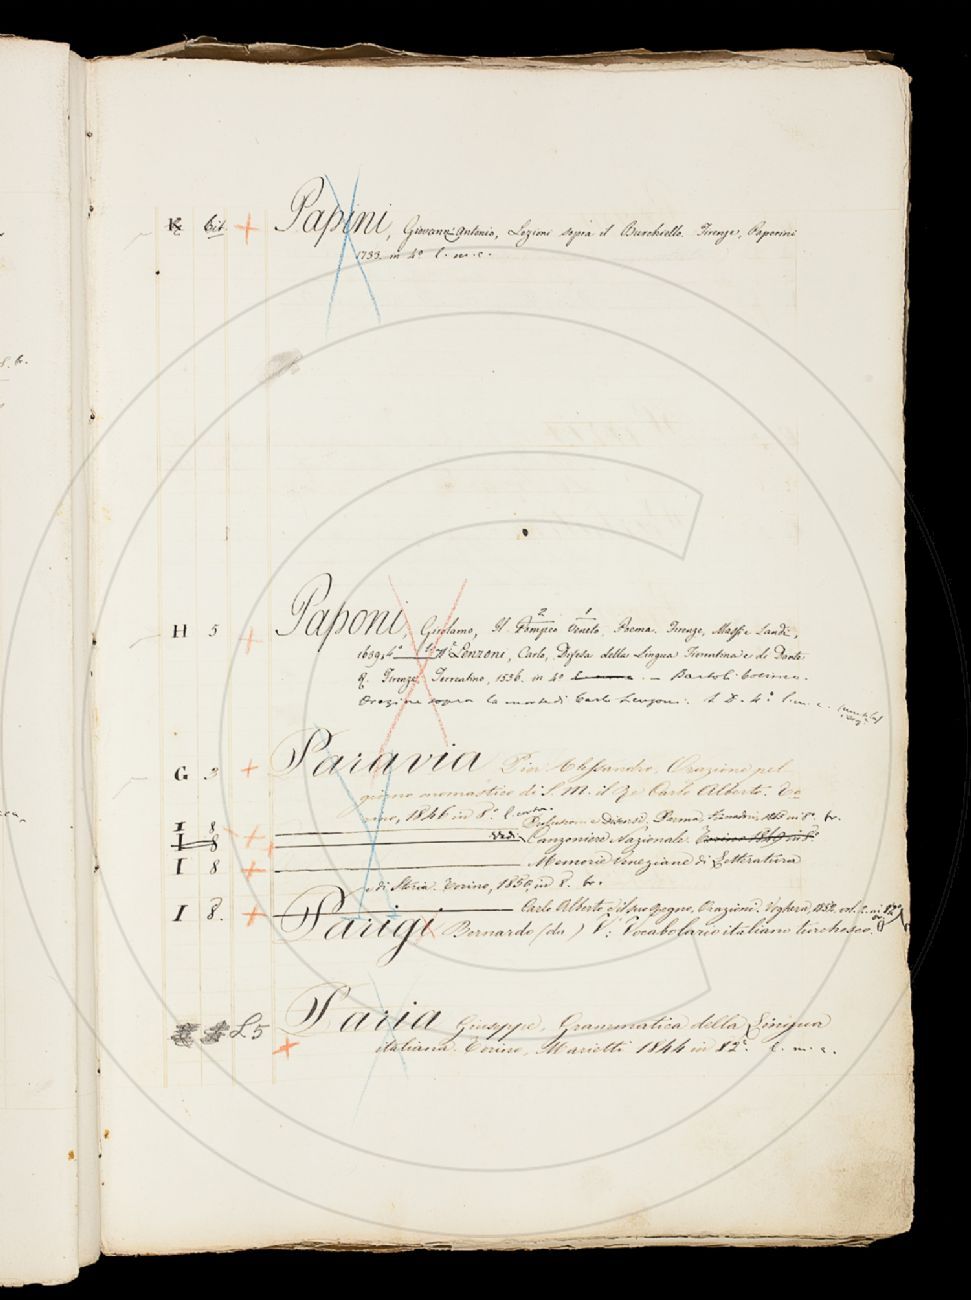 K 6 Papini, Giovann'Antonio, Lezioni sopra il Burchiello. Firenze, Paperini
1733. in 4° l. m. c.
H 5 Paponi, Girolamo, Il Pompeo Veneto, Poema. Firenze, Massi e Landi,
1639, 4° Lenzoni, Carlo, Difesa della Lingua Fiorentina e di Dante
Firenze, Torrentino, 1556. in 4° — Bartoli Cosimo.
Orazione sopra la morte di Carlo Lenzoni. 4° l. m. c.
G 3 Paravia Pier Alessandro, Orazione pel
giorno onomastico di S. M. il Re Carlo Alberto. To
rino, 1846 in 8°.
I 8 Discorsi, Parma, in 8°. br.
I 8 Canzoniere Nazionale. Torino 1849 in 8°.
I 8 Memorie Veneziane di Letteratura
e di Storia. Torino, 1850, in 8°. br.
I 8. Carlo Alberto e il suo Regno, Orazioni. Voghera, 1852. vol.
Parigi Bernardo (da) V: Vocabolario italiano turchesco.
L5 Paria Giuseppe, Grammatica della Lingua
italiana. Torino, Marietti 1844 in 12°. l. m. c.